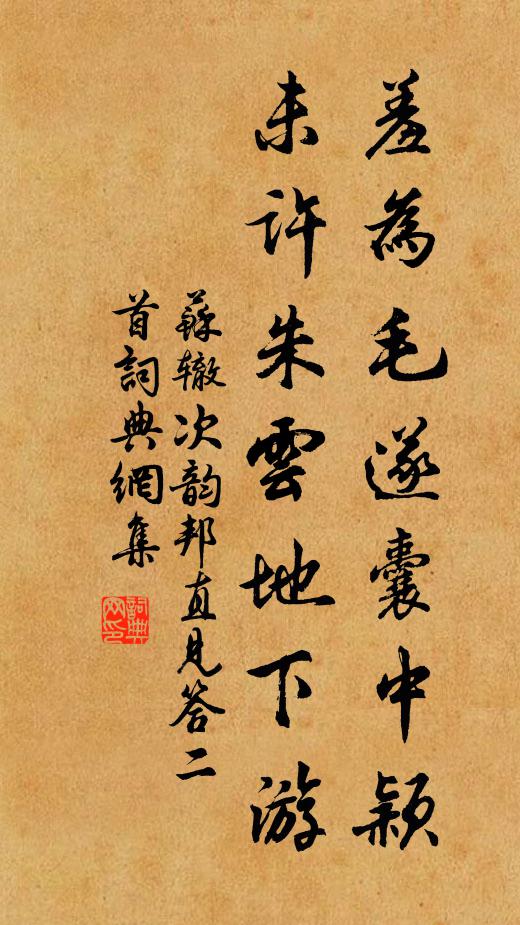 羞為毛遂囊中穎
未許朱雲地下游
蘇辙次韵邦直見答二
首詞典網集
詞典
网印